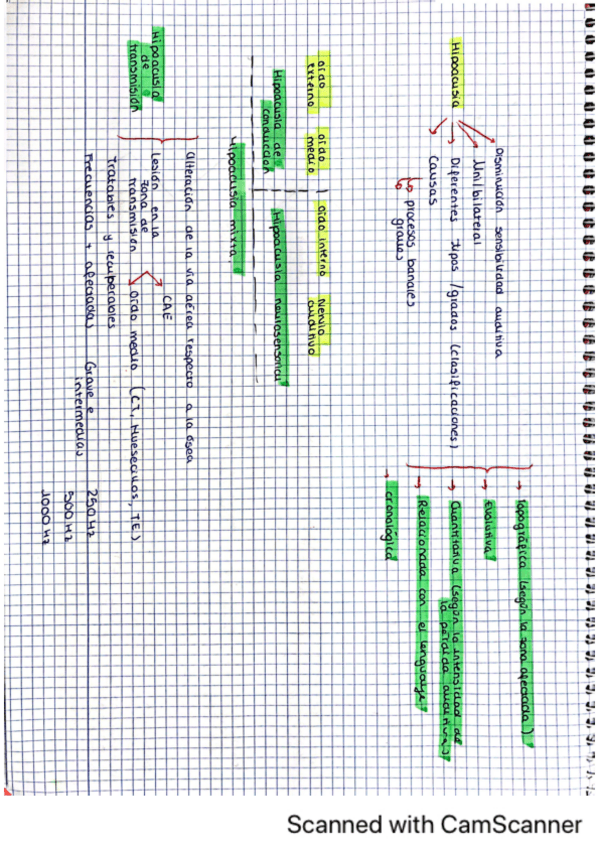 Hipoacusia
Disminución sensibilidad auditiva
Uni/bilateral
Diferentes tipos / grados (clasificaciones)
Causas
procesos banales
graves
Topográfica (según la zona afectada)
Evolutiva
Quantitativa (según la intensidad de
la pérdida auditiva)
Relacionada con el lenguaje
Cronológica
oído externo
oído medio
oído interno
Nervio auditivo
Hipoacusia de conducción
Hipoacusia neurosensorial
Hipoacusia mixta
Hipoacusia de transmisión
Alteración de la vía aérea respecto a la ósea
Lesión en la zona de transmisión
CAE
oído medio (CT, Huesecillos, TE)
Tratables y recuperables
Frecuencias + afectadas
Grave e intermedias
250 Hz
500 Hz
1000 Hz
Scanned with CamScanner